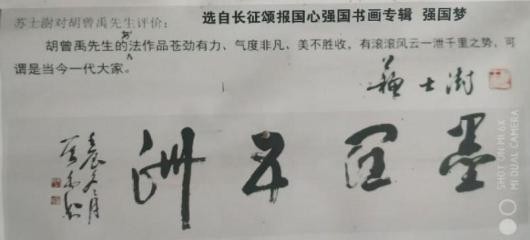 苏士澍对胡曾禹先生评价：
选自长征颂报国心强国书画专辑 强国梦
胡曾禹先生的书法作品苍劲有力、气度非凡、美不胜收，有滚滚风云一泄千里之势，可
谓是当今一代大家。
苏士澍
墨匡五洲
SHOT ON MI 6X
MI DUAL CAMERA